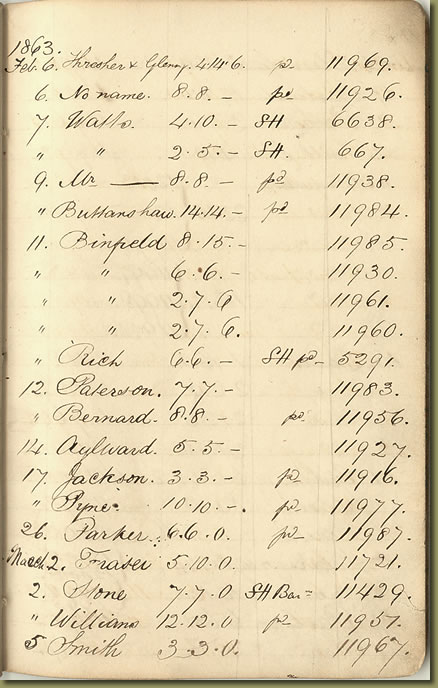 1863.
Feb. 6. Thresher & Glenny. 4.14.6. pd 11969.
6. No name. 8.8. – pd 11926.
7. Watts. 4.10. – SH 6638.
" " 2.5. – SH. 667.
9. Mr —— 8.8. – pd 11938.
" Buttanshaw. 14.14. – pd 11984.
11. Binfield 8.15. – 11985.
" " 6.6. – 11930.
" " 2.7.6 11961.
" " 2.7.6. 11960.
" Rich 6.6. – SH pd – 5291.
12. Paterson. 7.7. – 11983.
" Bernard. 8.8. – pd 11956.
14. Aylward. 5.5. – 11927.
17. Jackson. 3.3. – pd 11916.
" Pyne. 10.10. –. pd 11977.
26. Parker. 6.6.0. pd 11987.
March 2. Fraser 5.10.0. 11721.
2. Stone 7.7.0 SH Bar= 11429.
" Williams 12.12.0 pd 11957.
5 Smith 3.3.0. 11967.